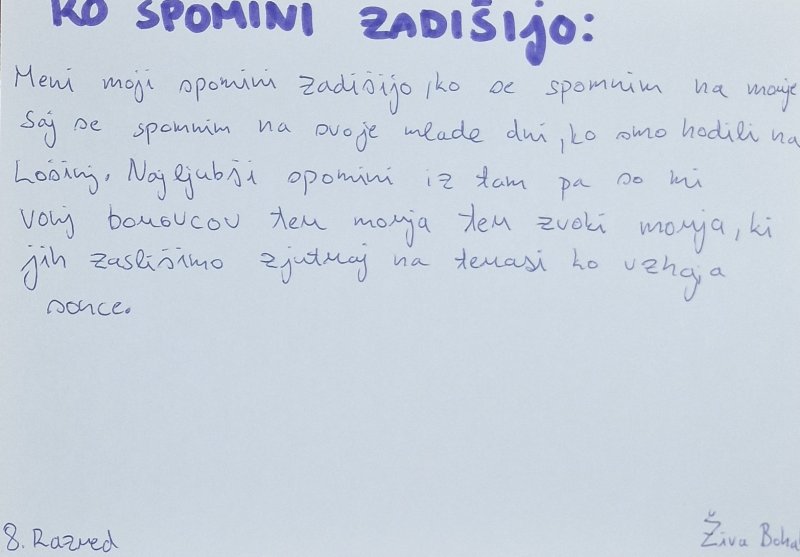 KO SPOMINI ZADIŠIJO:
Meni moji spomini zadišijo, ko se spomnim na morje
saj se spomnim na svoje mlade dni, ko smo hodili na
Lošinj. Najljubši spomini iz tam pa so mi
vonj borovcov ter morja ter zvoki morja, ki
jih zaslišimo zjutraj na terasi ko vzhaja
sonce.
8. Razred
Živa